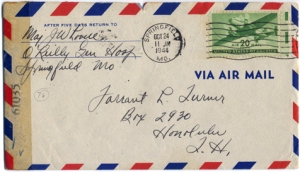 AFTER FIVE DAYS RETURN TO
Maj J W
O'Reilly Gen Hosp
Springfield Mo
SPRINGFIELD
OCT 24
11 AM
1944
MO.
20
VIA AIR MAIL
Farrant L. Turner
Box 2930
Honolulu
T.H.